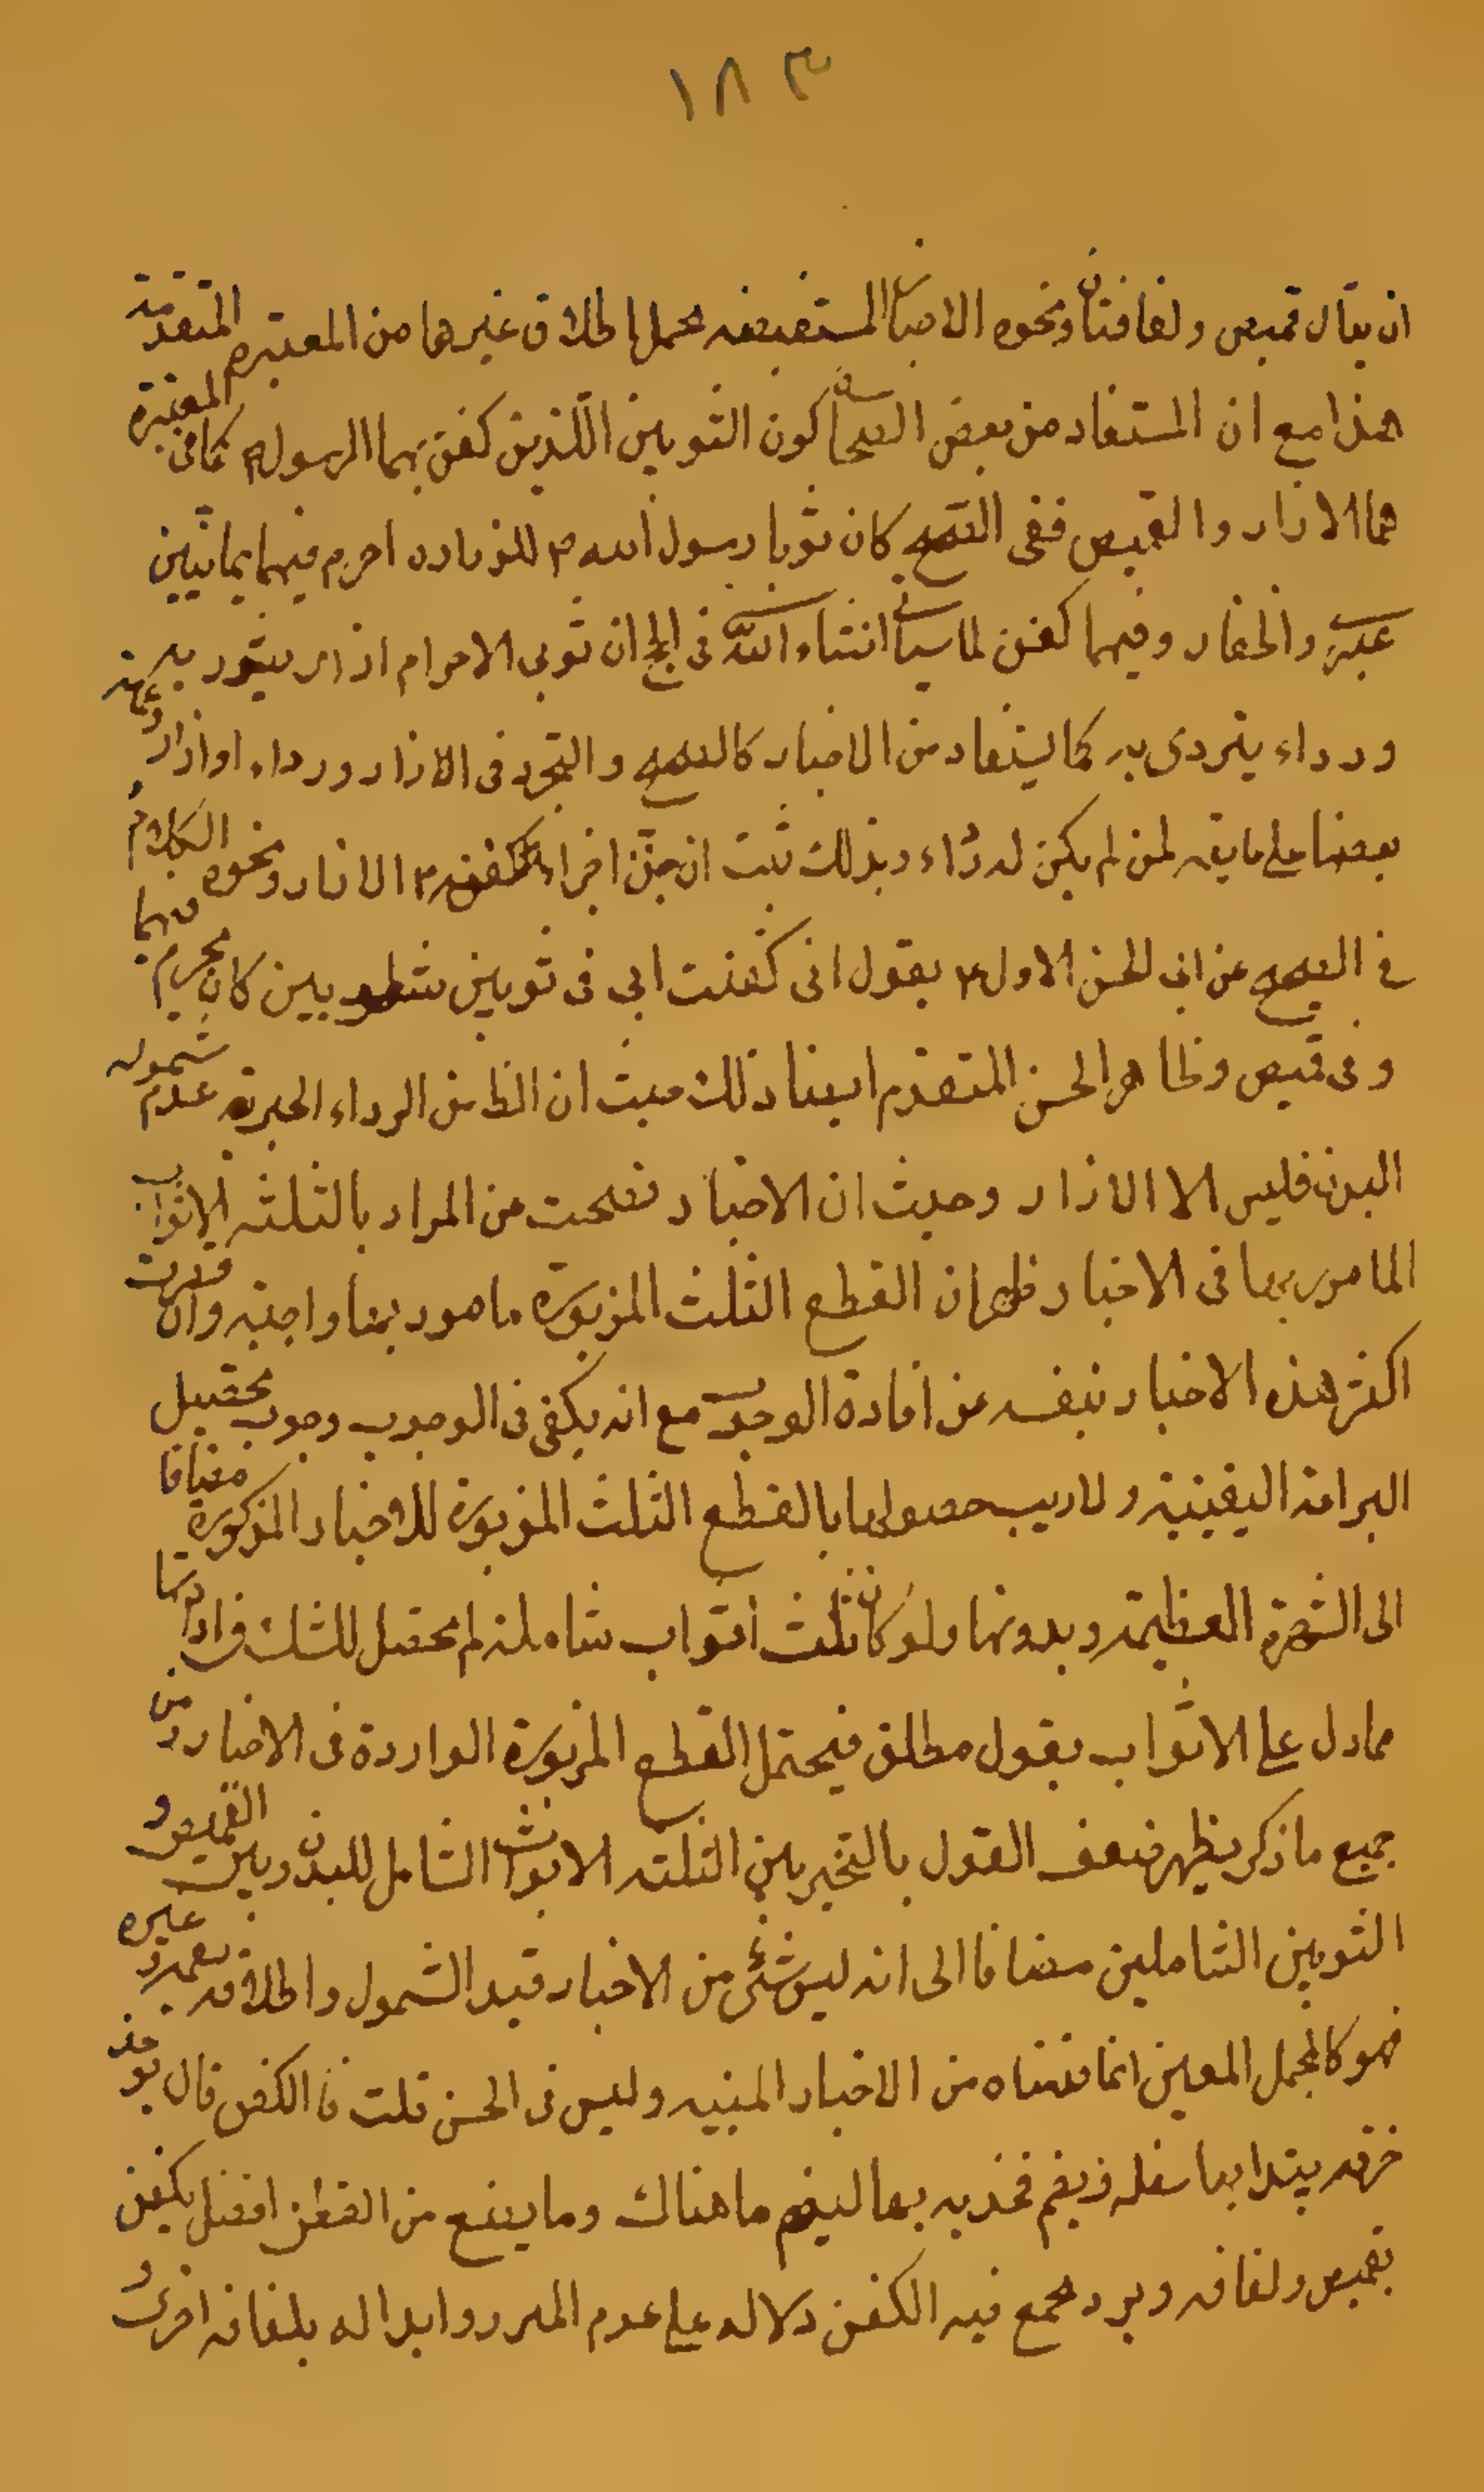 ١٨٣
ان يقال قميص ولفافتان ونحوه الاخبار المستفيضه يحمل اطلاق غيرها من المعتبره المتقدمة
هذا مع ان المستفاد من بعض الصحاح كون الثوبين اللذين كفن بهما الرسول ص كما فى المعتبرة
هما الازار والقميص ففى الصحيح كان ثوبا رسول الله ص اللذ احرم فيهما يمانيين
عبرى واظفار وفيهما كفن لما سياتى انشاء الله فى الحج ان ثوبى الاحرام ازار يتزر به
ورداء يتردى به كما يستفاد من الاخبار كالصحيح والتجرد فى الازار ورداء او ازار وعمامة
بعضها على ما يقه لمن لم يكن له رداء وبذلك ثبت ان من اجزاء كفنه ص الازار ونحوه الكلام
فى الصحيح عن ابى الحسن الاول ع يقول انى كفنت ابى فى ثوبين شطويين كان يحرم فيهما
وفى قميص وظاهر الحسن المتقدم ايضا ذلك حيث ان الظ من الرداء الحبرة عدم شموله
البدن فليس الا الازار وحيث ان الاخبار تفصحت من المراد بالثلثه الاثواب
المامور بها فى الاخبار ظهر ان القطع الثلث المزبورة مامور بها واجبة وان قصرت
اكثر هذه الاخبار بنفسه عن افادة الوجوب مع انه يكفى فى الوجوب وجوب تحصيل
البرائة اليقينية ولا ريب حصولها بالقطع الثلث المزبورة للاخبار المذكورة مضافا
الى الشهرة العظيمة وبدونها ولو كان ثلث اثواب شاملة لم يحصل للشك فى ارادتها
مما دل على الاثواب بقول مطلق فيحتمل القطع المزبورة الواردة فى الاخبار ومن
جميع ما ذكر يظهر ضعف القول بالتخير بين الثلثه الاثواب الشامل للبدن وبين القميص و
الثوبين الشاملين مضافا الى انه ليس شئ من الاخبار قيد الشمول واطلاقه يعمه وغيره
فهو كالمجمل المعين اتخاذ من الاخبار المبنيه وليس فى الحسن قلت فالكفن قال يؤخذ
خرقه يشد بها سفله ويضم فخذيه بها ليضم ما هناك وما يصنع من القطن افضل يكفن
بقميص ولفافه وبرد يجمع فيه الكفن دلاله على عدم المئزر وابداله بلفافه اخرى و